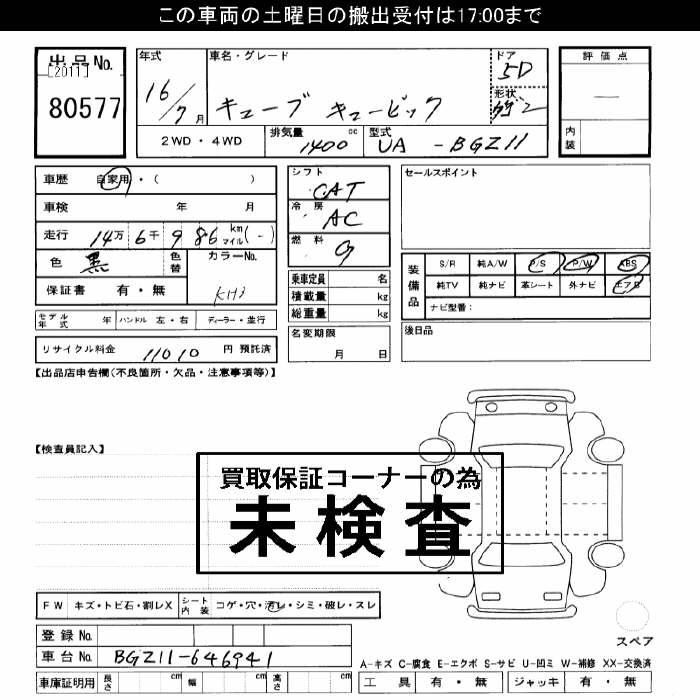 この車両の土曜日の搬出受付は17:00まで
出品No.
[2011]
80577
年式
16/7月
車名・グレード
キューブ キュービック
ドア
5D
形状
2WD・4WD
排気量
1400 cc
型式
UA - BGZ11
評価点
—
内装
車歴 自家用・( )
車検 年 月
走行 14万 6千 986 km マイル(-)
色 黒 色替
カラーNo.
KH3
保証書 有・無
モデル年式 年 ハンドル 左・右 ディーラー・並行
リサイクル料金 11010 円 預託済
シフト
CAT
冷房
AC
燃料
G
乗車定員 名
積載量 kg
総重量 kg
名変期限
月 日
セールスポイント
装備品
S/R 純A/W P/S P/W ABS
純TV 純ナビ 革シート 外ナビ エアB
ナビ型番：
後日品
【出品店申告欄(不良箇所・欠品・注意事項等)】
【検査員記入】
買取保証コーナーの為
未検査
FW キズ・トビ石・割レX シート内装 コゲ・穴・汚レ・シミ・破レ・スレ
登録No.
車台No. BGZ11-646941
車庫証明用 長さ cm 幅 cm 高さ cm
スペア
A-キズ C-腐食 E-エクボ S-サビ U-凹ミ W-補修 XX-交換済
工具 有・無 ジャッキ 有・無